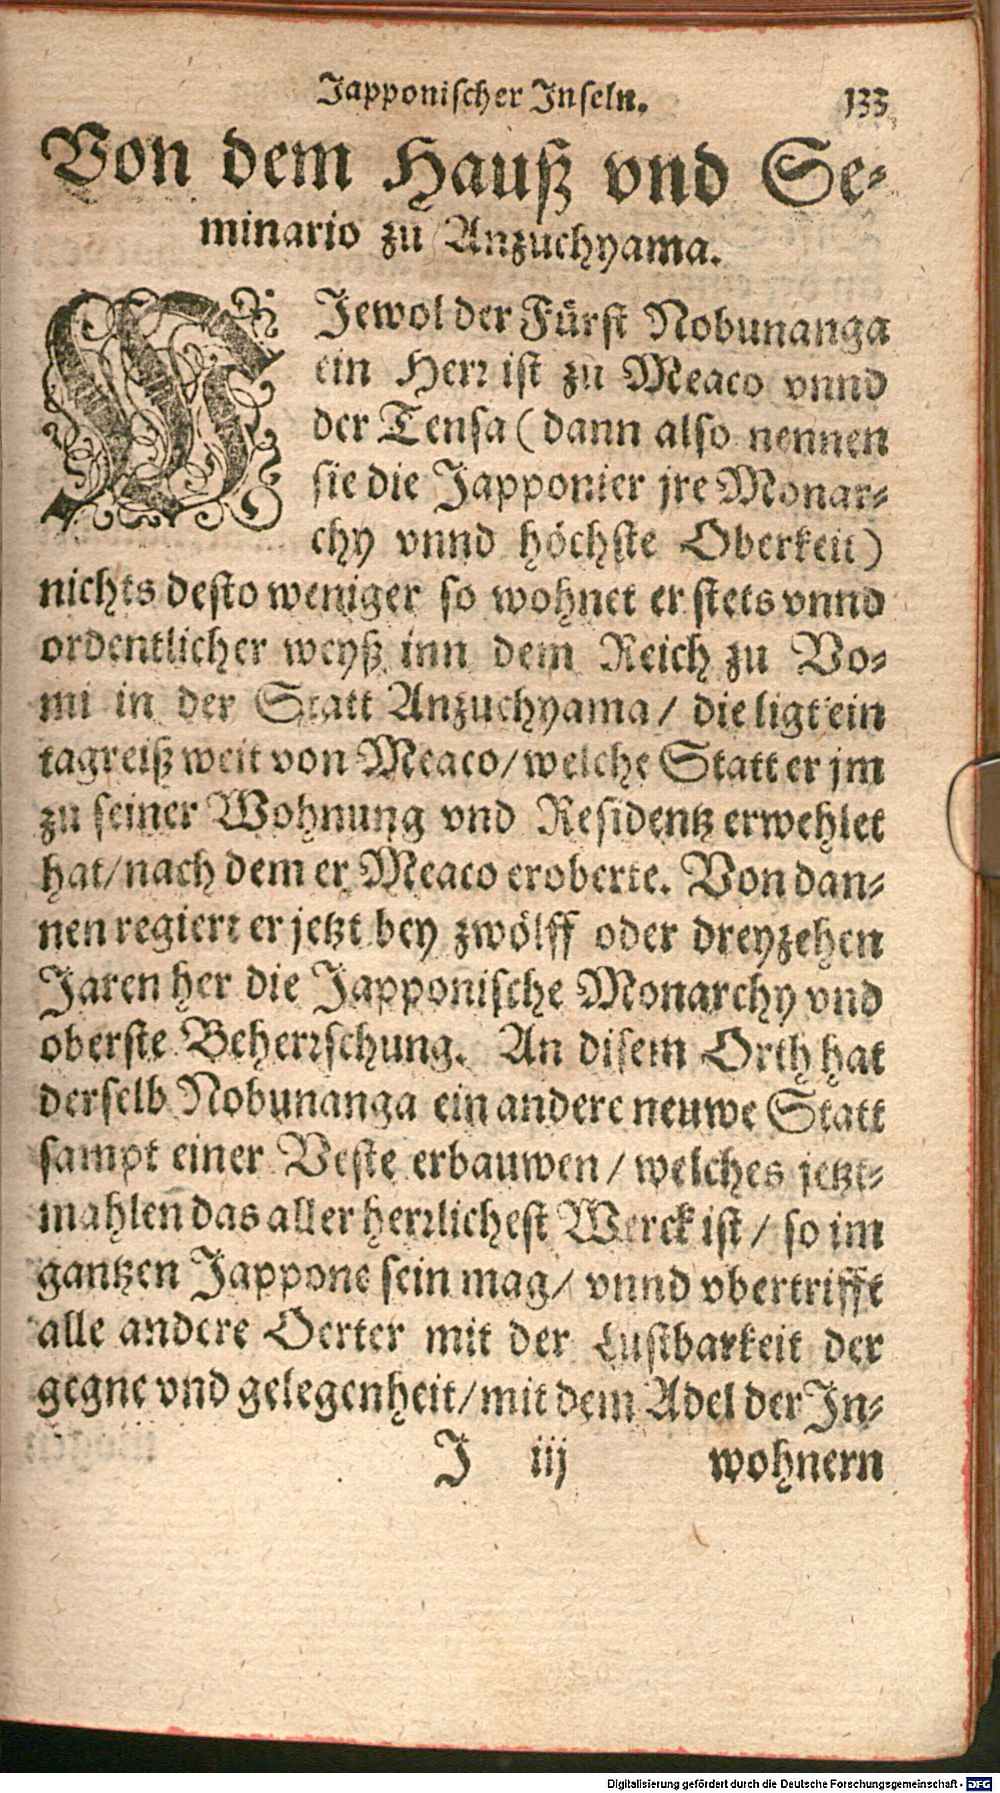 Japponischer Inseln. 133
Von dem Hauß vnd Se-
minario zu Anzuchyama.
WJewol der Fürst Nobunanga
ein Herr ist zu Meaco vnnd
der Tensa (dann also nennen
sie die Japponier jre Monar-
chy vnnd höchste Oberkeit)
nichts desto weniger so wohnet er stets vnnd
ordentlicher weyß inn dem Reich zu Vo-
mi in der Statt Anzuchyama / die ligt ein
tagreiß weit von Meaco / welche Statt er jm
zu seiner Wohnung vnd Residentz erwehlet
hat / nach dem er Meaco eroberte. Von dan-
nen regiert er jetzt bey zwölff oder dreyzehen
Jaren her die Japponische Monarchy vnd
oberste Beherrschung. An disem Orth hat
derselb Nobunanga ein andere neuwe Statt
sampt einer Veste erbauwen / welches jetzt-
mahlen das aller herrlichest Werck ist / so im
gantzen Jappone sein mag / vnnd vbertrifft
alle andere Oerter mit der Lustbarkeit der
gegne vnd gelegenheit / mit dem Adel der In-
J iij wohnern
Digitalisierung gefördert durch die Deutsche Forschungsgemeinschaft - DFG